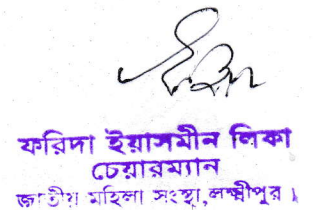 ফরিদা ইয়াসমীন লিকা
চেয়ারম্যান
জাতীয় মহিলা সংস্থা,লক্ষ্মীপুর।